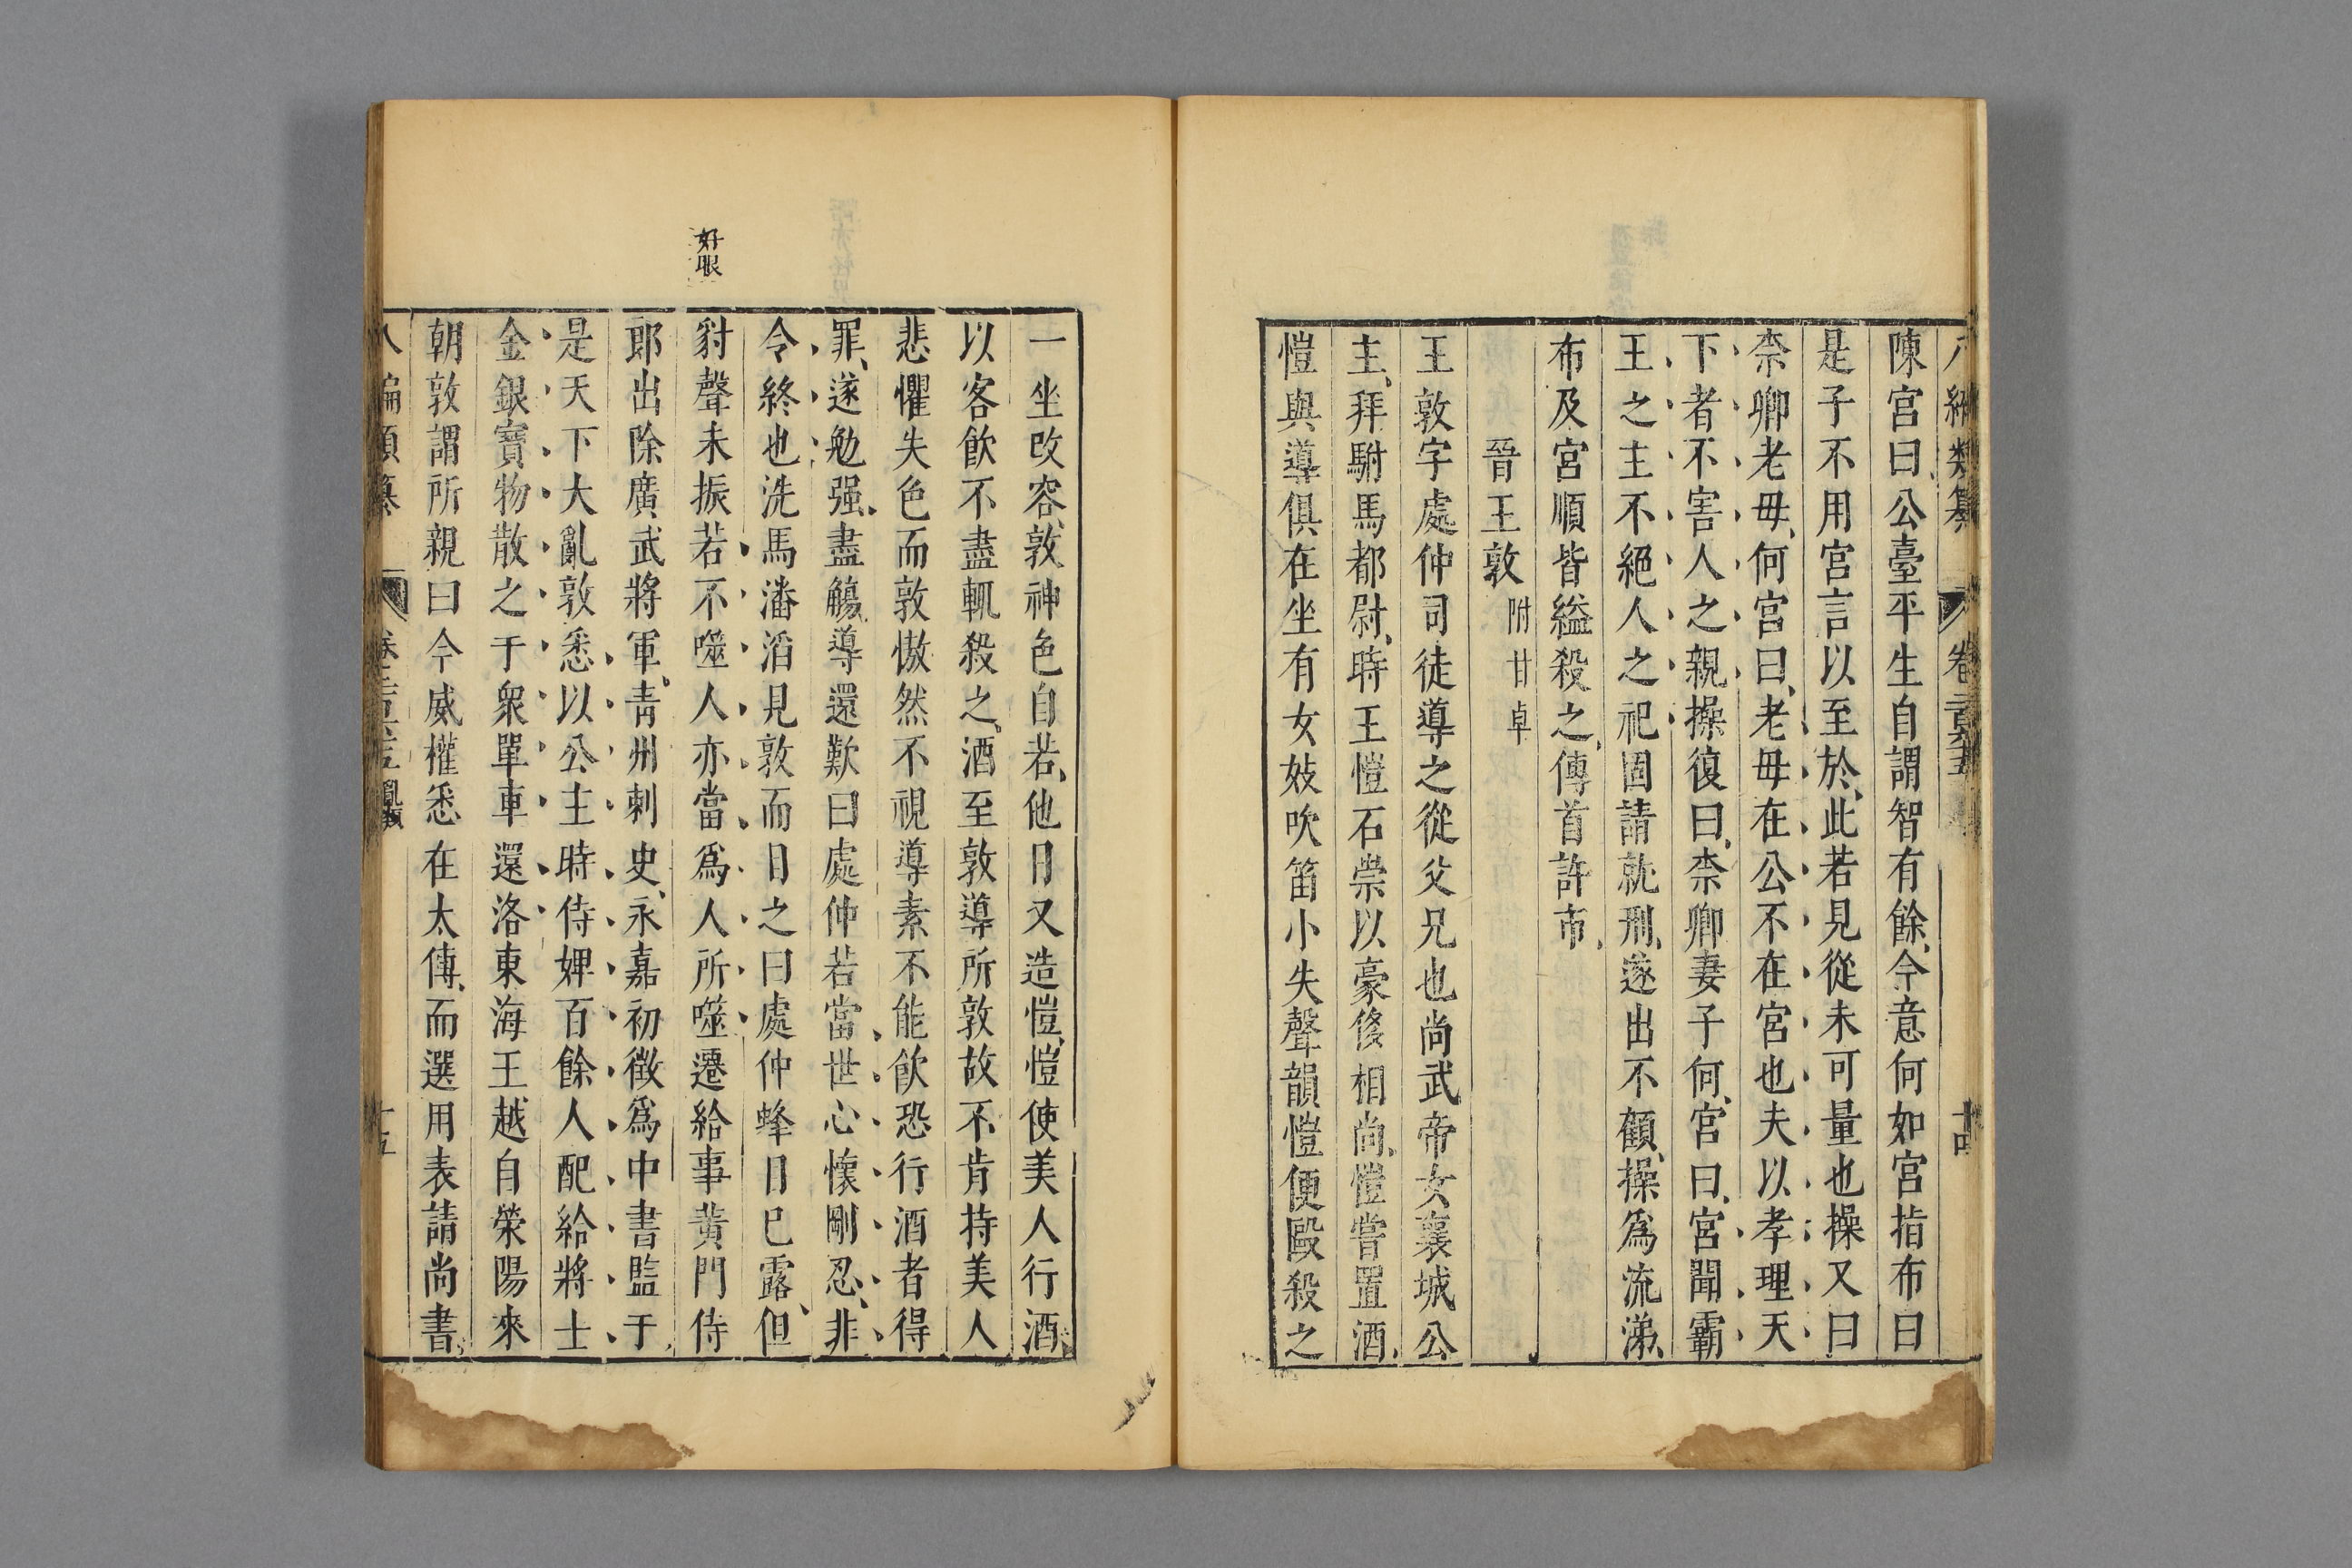 陳宮曰公臺平生自謂智有餘今意何如宮指布曰
是子不用宮言以至於此若見從未可量也操又曰
柰卿老母何宮曰老母在公不在宮也夫以孝理天
下者不害人之親操復曰柰卿妻子何宮曰宮聞霸
王之主不絕人之祀固請就刑遂出不顧操爲流涕
布及宮順皆縊殺之傳首許市
晉王敦附甘卓
王敦字處仲司徒導之從父兄也尚武帝女襄城公
主拜駙馬都尉時王愷石崇以豪侈相尚愷嘗置酒
愷與導俱在坐有女妓吹笛小失聲韻愷便毆殺之
一坐改容敦神色自若他日又造愷愷使美人行酒
以客飲不盡輒殺之酒至敦導所敦故不肯持美人
悲懼失色而敦傲然不視導素不能飲恐行酒者得
罪遂勉强盡觴導還歎曰處仲若當世心懷剛忍非
令終也洗馬潘滔見敦而目之曰處仲蜂目已露但
豺聲未振若不噬人亦當爲人所噬遷給事黃門侍
郎出除廣武將軍靑州刺史永嘉初徵爲中書監于
是天下大亂敦悉以公主時侍婢百餘人配給將士
金銀寶物散之于衆單車還洛東海王越自滎陽來
朝敦謂所親曰今威權悉在太傅而選用表請尚書
好眼
八編類纂 卷二百六十五 十四
八編類纂 十五